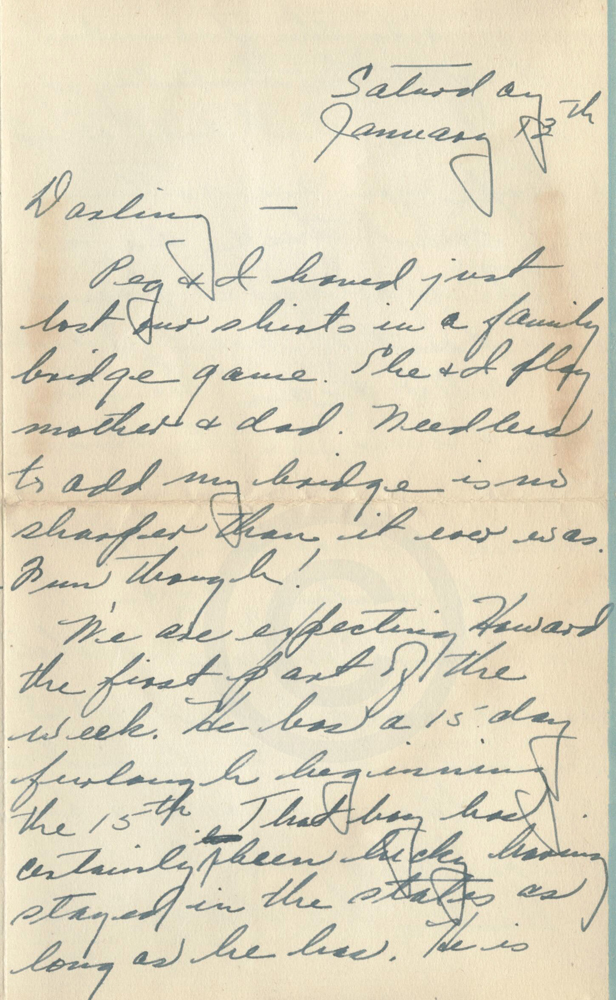 Saturday
January 13th
Darling —
Peg & I have just
lost our shirts in a family
bridge game. She & I play
mother & dad. Needless
to add my bridge is no
sharper than it ever was.
Fun though!
We are expecting Howard
the first part of the
week. He has a 15 day
furlough beginning
the 15th. That boy has
certainly been lucky having
stayed in the states as
long as he has. He is